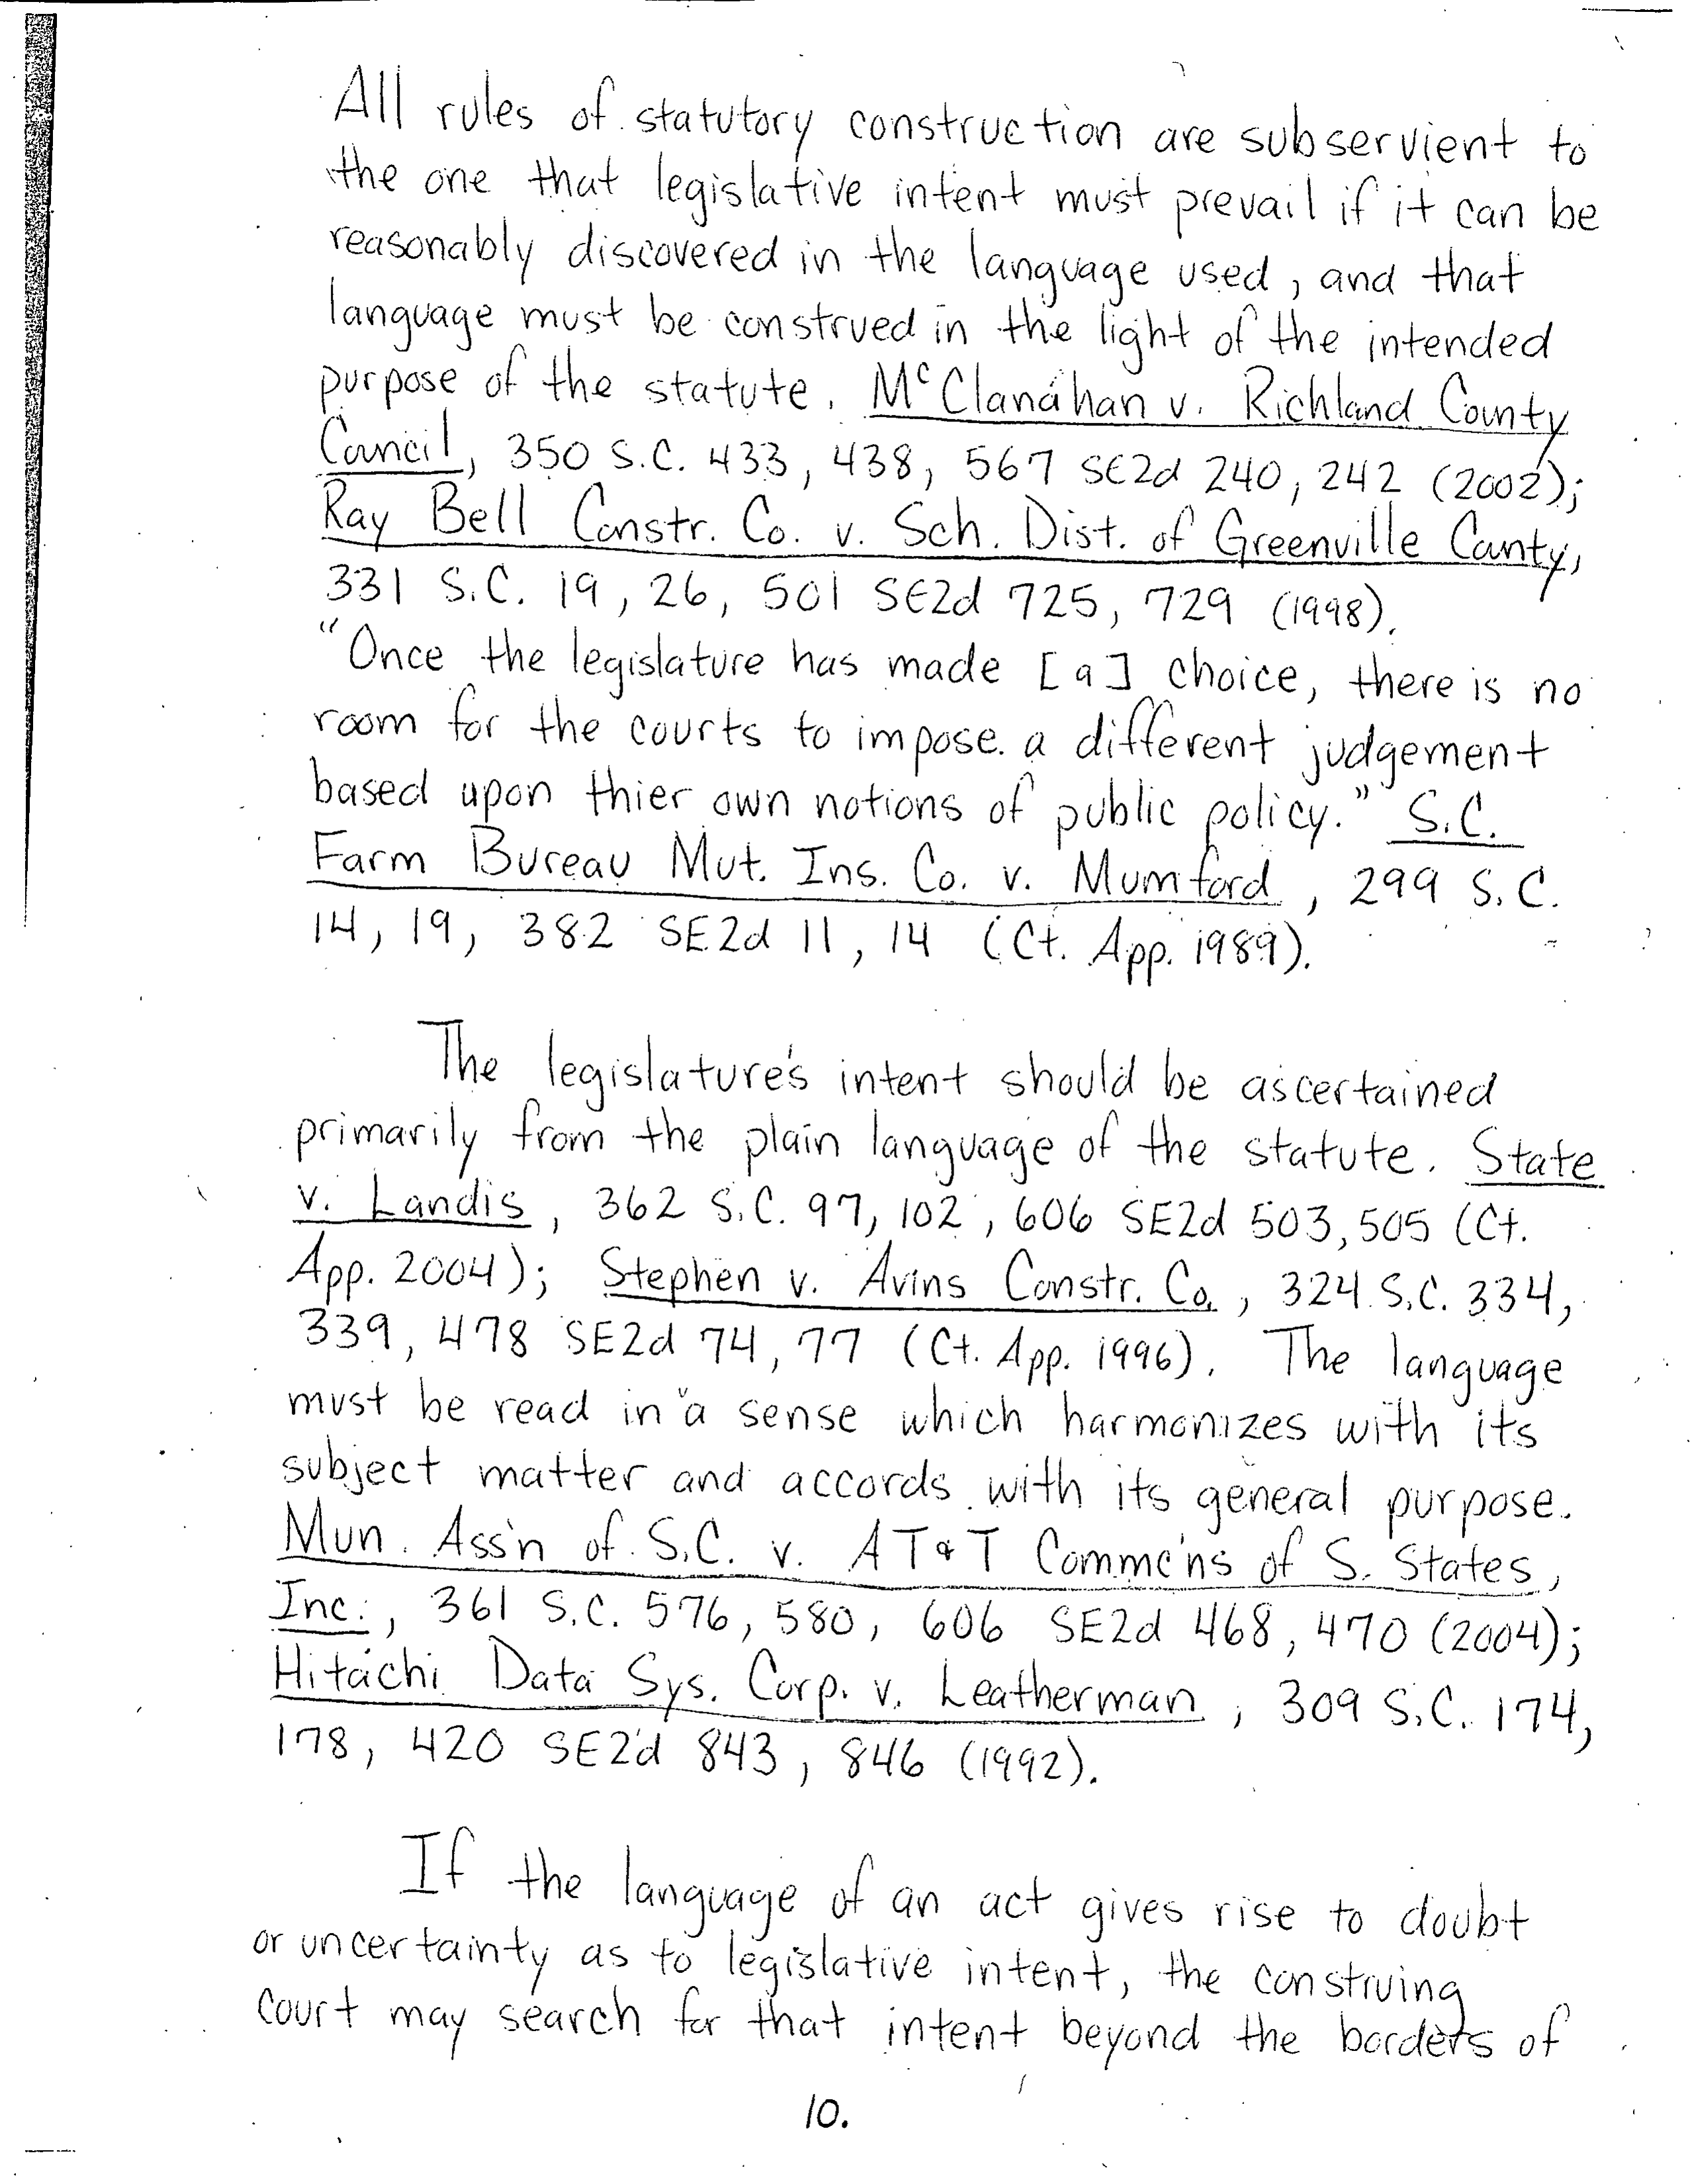 All rules of statutory construction are subservient to
the one that legislative intent must prevail if it can be
reasonably discovered in the language used, and that
language must be construed in the light of the intended
purpose of the statute. McClanahan v. Richland County
Council, 350 S.C. 433, 438, 567 SE2d 240, 242 (2002);
Ray Bell Constr. Co. v. Sch. Dist. of Greenville County,
331 S.C. 19, 26, 501 SE2d 725, 729 (1998).
"Once the legislature has made [a] choice, there is no
room for the courts to impose a different judgement
based upon thier own notions of public policy." S.C.
Farm Bureau Mut. Ins. Co. v. Mumford, 299 S.C.
14, 19, 382 SE2d 11, 14 (Ct. App. 1989).
The legislature's intent should be ascertained
primarily from the plain language of the statute. State
v. Landis, 362 S.C. 97, 102, 606 SE2d 503, 505 (Ct.
App. 2004); Stephen v. Avins Constr. Co., 324 S.C. 334,
339, 478 SE2d 74, 77 (Ct. App. 1996). The language
must be read in a sense which harmonizes with its
subject matter and accords with its general purpose.
Mun. Ass'n of S.C. v. AT&T Commc'ns of S. States,
Inc., 361 S.C. 576, 580, 606 SE2d 468, 470 (2004);
Hitachi Data Sys. Corp. v. Leatherman, 309 S.C. 174,
178, 420 SE2d 843, 846 (1992).
If the language of an act gives rise to doubt
or uncertainty as to legislative intent, the construing
court may search for that intent beyond the borders of
10.